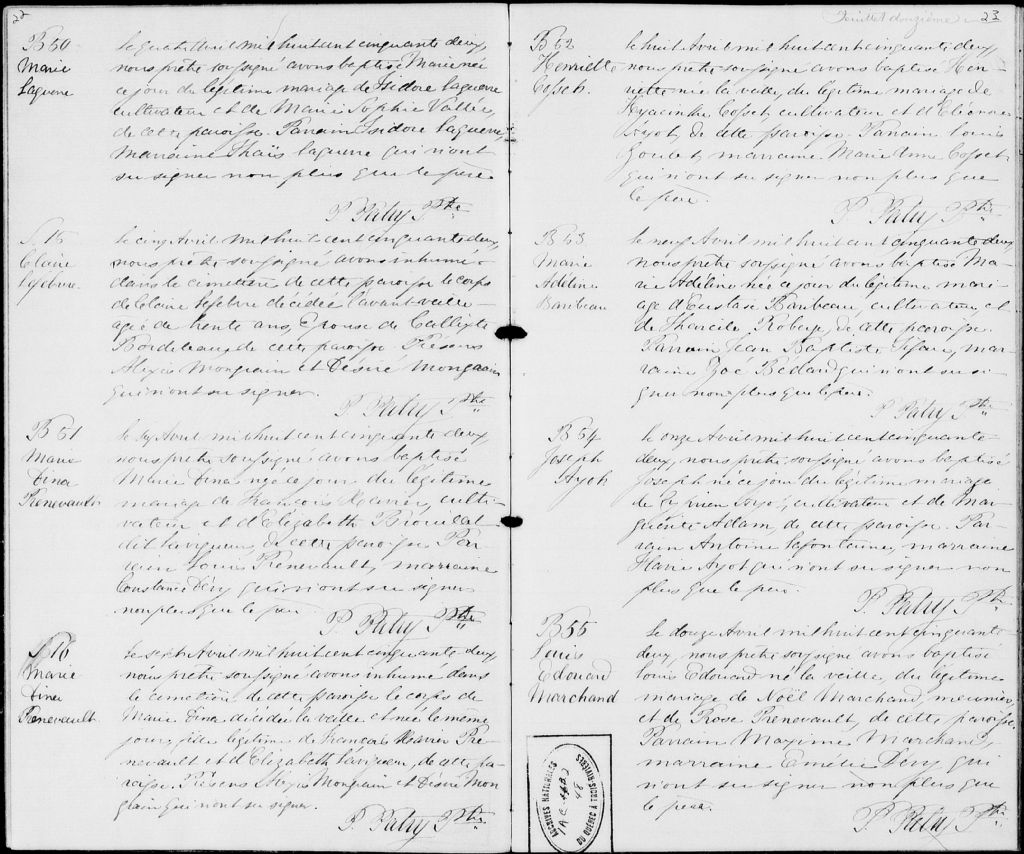 22
B 50
Marie
Laguerre
le quatre Avril mil huit cent cinquante deux,
nous prêtre soussigné avons baptisé Marie née
ce jour du légitime mariage de Isidore Laguerre
cultivateur et de Marie Sophie Vallée,
de cette paroisse. Parrain Isidore Laguerre,
marraine Thaïs Laguerre qui n'ont
su signer non plus que le père
P. Patry Ptre
S. 15
Claire
Lefebvre
le cinq Avril mil huit cent cinquante deux,
nous prêtre soussigné avons inhumé
dans le cimetière de cette paroisse le corps
de Claire Lefebvre décédée l'avant veille
agée de trente ans, Epouse de Callixte
Bordeleau, de cette paroisse. Présens
Alexis Mongrain et Désiré Mongrain
qui n'ont su signer.
P. Patry Ptre
B 51
Marie
Dina
Renevault
le six Avril mil huit cent cinquante deux,
nous prêtre soussigné avons baptisé
Marie Dina née ce jour du légitime
mariage de François Xavier, culti-
vateur et d'Elizabeth Brouillet
dit Lavigueur, de cette paroisse. Par-
rain Louis Renevault, marraine
Constance Déry qui n'ont su signer
non plus que le père
P. Patry Ptre
S 16
Marie
Dina
Renevault
le sept Avril mil huit cent cinquante deux,
nous prêtre soussigné avons inhumé dans
le cimetière de cette paroisse le corps de
Marie Dina décédée la veille et née le même
jour, fille légitime de François Xavier Re-
nevault et d'Elizabeth Lavigueur, de cette pa-
roisse. Présens Alexis Mongrain et Désiré Mon
grain qui n'ont su signer.
P. Patry Ptre
feuillet douzième
23
B 52
Henriette
Cosset.
le huit Avril mil huit cent cinquante deux,
nous prêtre soussigné avons baptisé Hen-
riette née la veille, du légitime mariage de
Hyacinthe Cosset cultivateur et d'Eléonore
Ayot, de cette paroisse. Parrain Louis
Goulet, marraine Marie Anne Cosset
qui n'ont su signer non plus que
le père.
P. Patry Ptre
B 53
Marie
Adéline
Baribeau
le neuf Avril mil huit cent cinquante deux
nous prêtre soussigné avons baptisé Ma-
rie Adéline née ce jour du légitime mari-
age d'Eustase Baribeau, cultivateur, et
de Tharcile Roberge, de cette paroisse.
Parrain Jean Baptiste, mar-
raine Zoé Bédard qui n'ont su si-
gner non plus que le père.
P. Patry Ptre
B 54
Joseph
Ayot
le onze Avril mil huit cent cinquante
deux, nous prêtre soussigné avons baptisé
Joseph né ce jour du légitime mariage
de Cyprien Ayot, cultivateur et de Mar-
guerite Adam, de cette paroisse. Par-
rain Antoine Lafontaine, marraine
Flavie Ayot qui n'ont su signer non
plus que le père.
P. Patry Ptre
B 55
Louis
Edouard
Marchand
le douze Avril mil huit cent cinquante
deux, nous prêtre soussigné avons baptisé
Louis Edouard né la veille, du légitime
mariage de Noël Marchand, meunier,
et de Rose Renevault, de cette paroisse.
Parrain Maxime Marchand,
marraine Emélie Déry qui
n'ont su signer non plus que
le père.
P. Patry Ptre
ARCHIVES NATIONALES
DU QUÉBEC À TROIS-RIVIÈRES
48